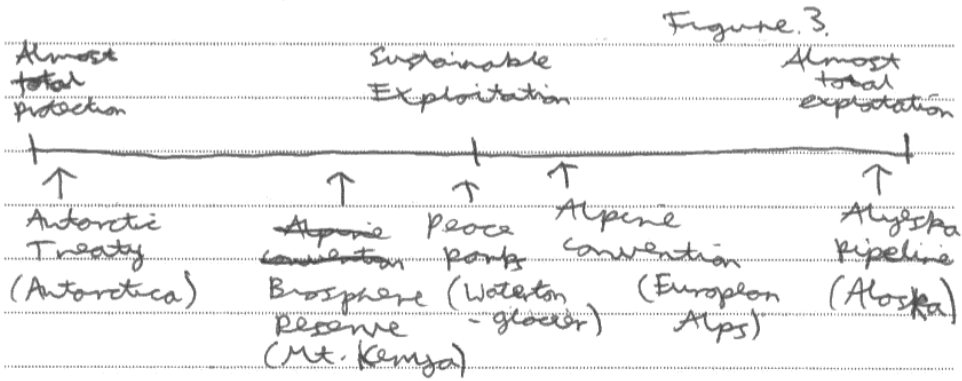 Figure.3.
Almost
total
protection
Sustainable
Exploitation
Almost
total
explotation
Antarctic
Treaty
(Antarctica)
Alpine
convention
Biosphere
Reserve
(Mt. Kenya)
Peace
parks
(Waterton
- glacier)
Alpine
convention
(European
Alps)
Alyeska
pipeline
(Alaska)